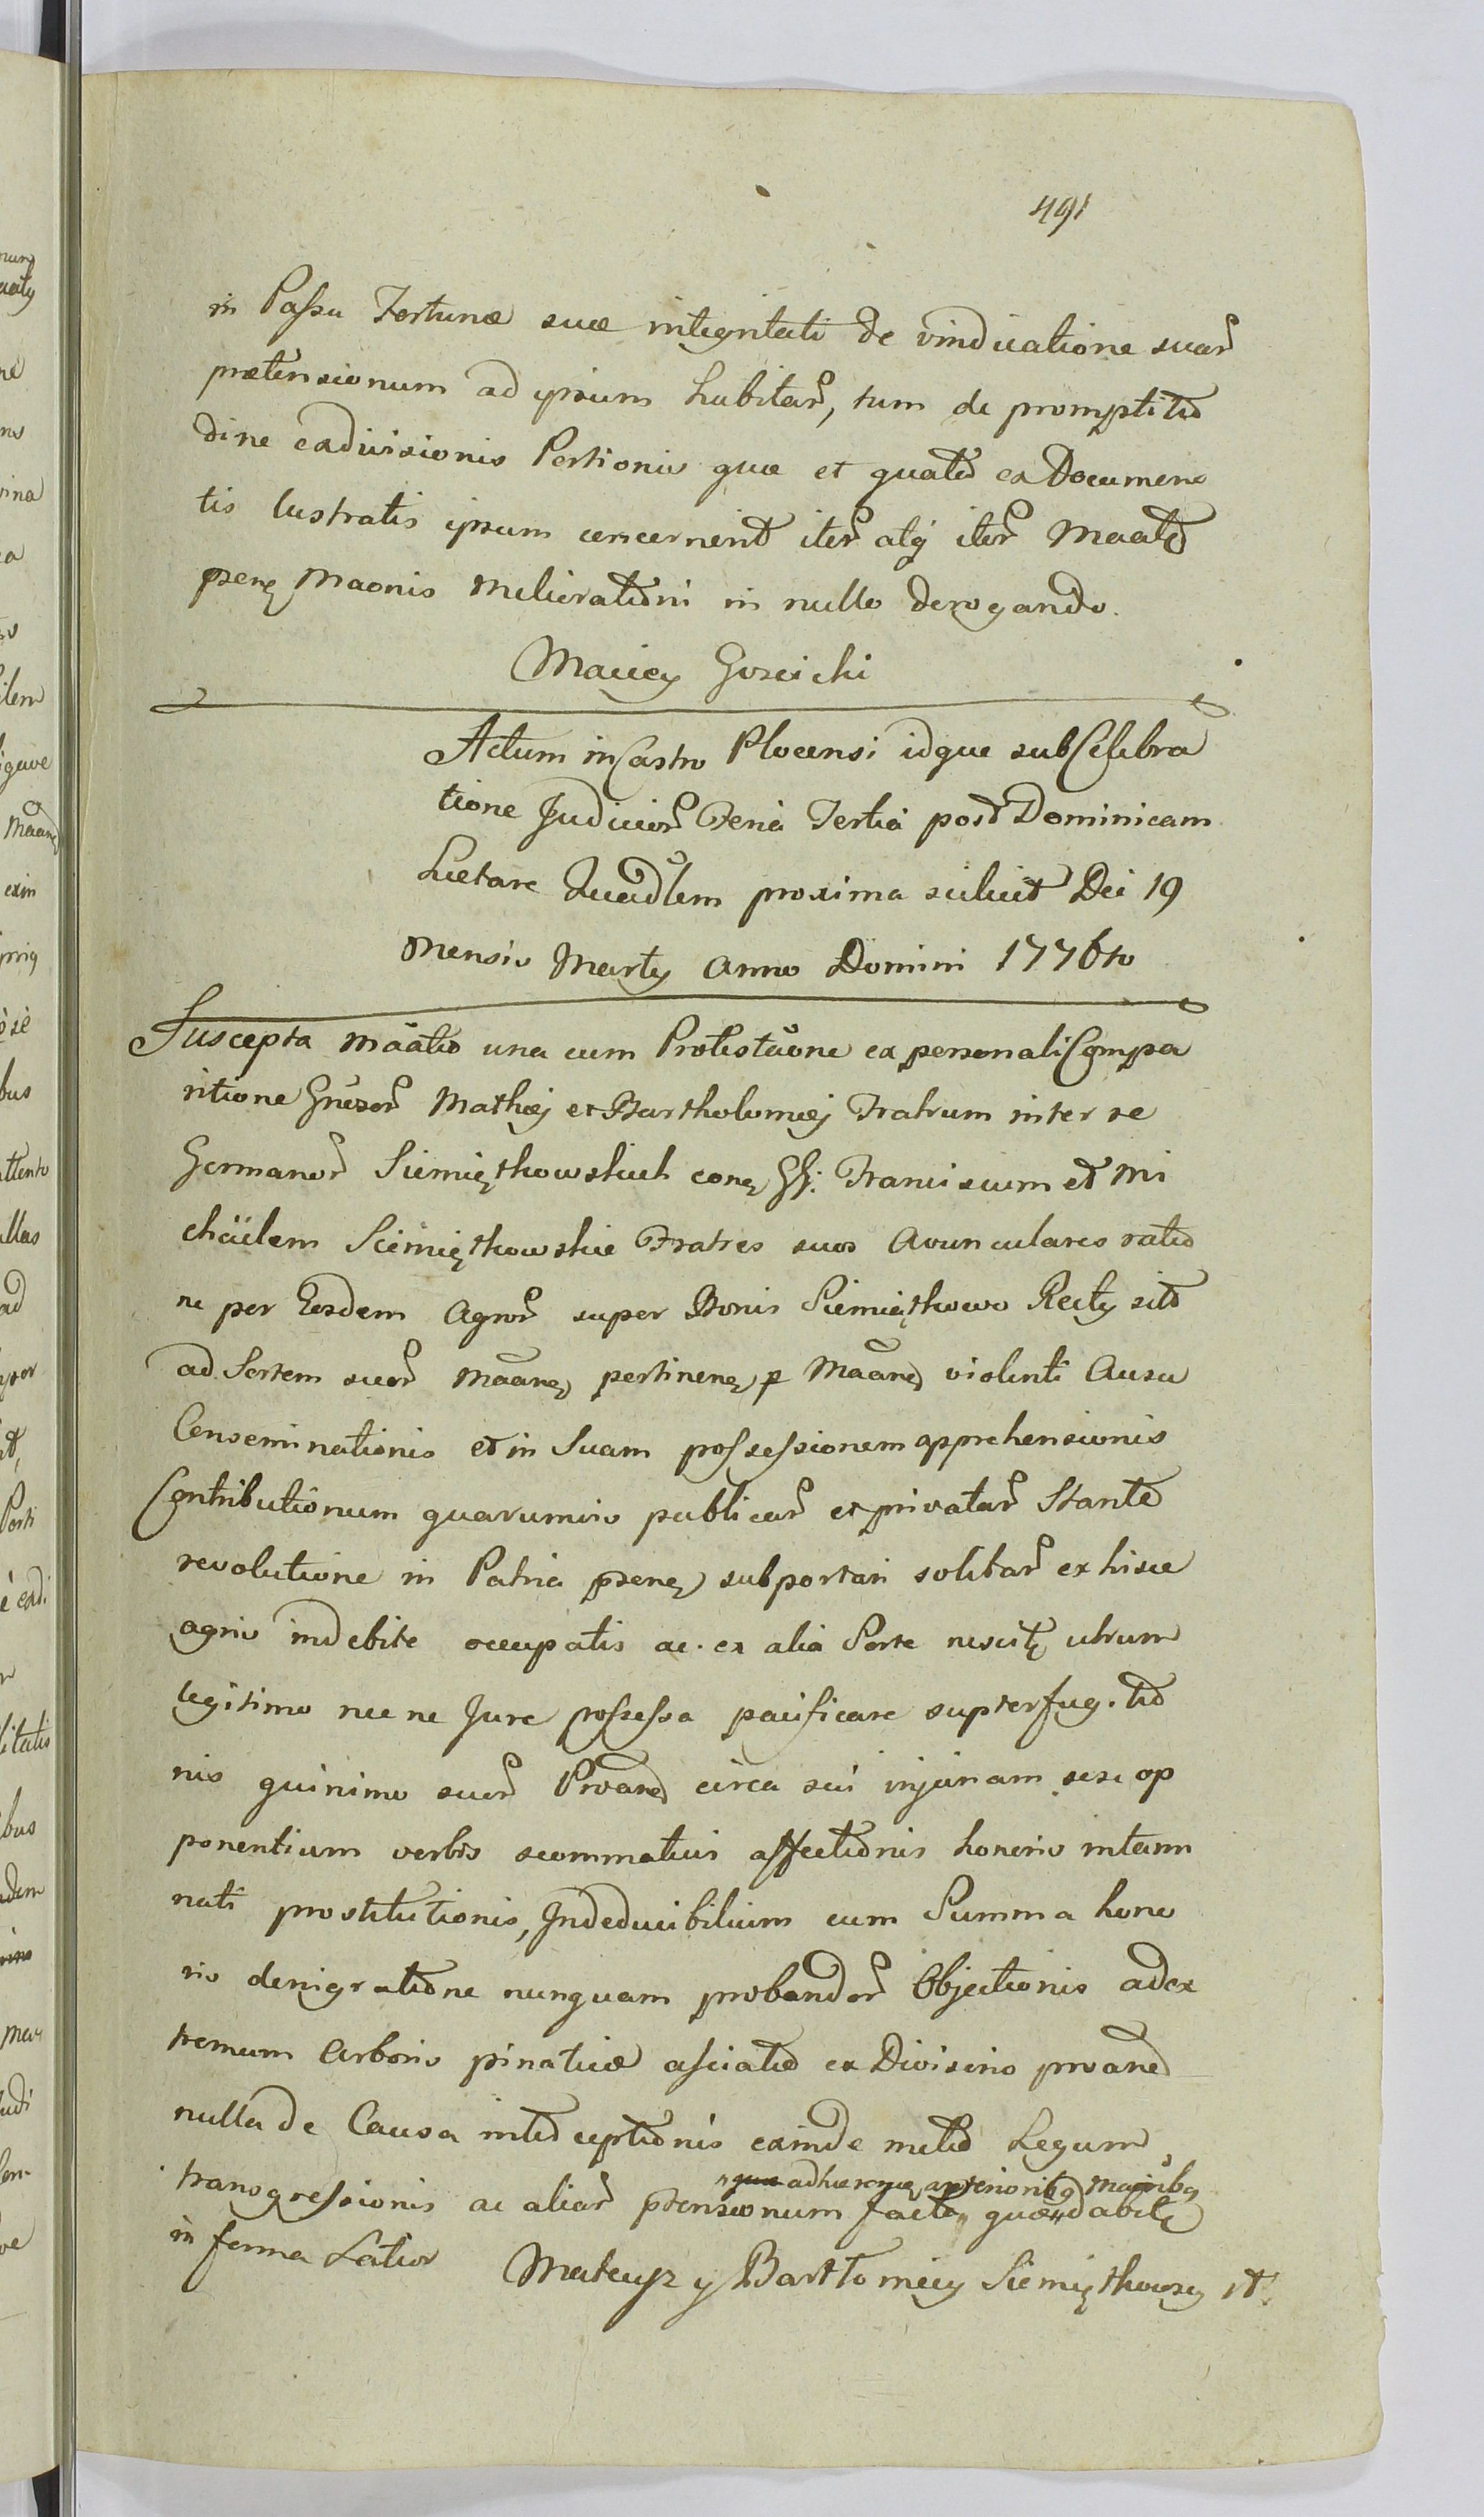 491
in Passu Fortunæ suæ integritati de vindicatione suar
prætensionum ad ipsum habitar, tum de promptitu
dine exdivisionis Portionis quæ et quat ex Documen
tis lustratis ipsum concernent iter atq iter Maat
psene Maonis meliorationi in nullo derogando.
Maciey Goscicki
Actum in Castro Plocensi idque sub Celebra
tione Judicior Feria Tertia post Dominicam
Laetare Quadlem proxima scilicet Die 19
Mensis Martij Anno Domini 1776to
Suscepta Maatio una cum Protestaone ex personali Compa
ritione Gnesor Mathæj et Bartholomæj Fratrum inter se
Germanor Siemiętkowskich cone GG. Franciscum et Mi
chäelem Siemiętkowskie Fratres suos Avunculares ratio
ne per Eosdem Agror super Bonis Siemiątkowo Rechy sit
ad Sortem suor Maane pertinene p Maane violenti Ausu
Conseminationis et in Suam possessionem apprehensionis
Contributionum quarumvis publicar et privatar Stante
revolutione in Patria psene subportari solitar ex hisce
agris indebite occupatis ac ex alia Sorte nescite utrum
legitimo nec ne Jure possessa pacificare supterfugitio
nis quinimo suor Proane circa sui injuriam sese op
ponentium verbis scommaticis affectionis honoris intami
nati prostitutionis, Indeducibilium cum Summa hono
ris denigratione nunquam probandor Objectionis ad ex
tremum Arboris pinaticæ asciatio ex Divisino proane
nulla de Causa interceptionis exinde metio Legum
transgressionis ac aliar ptensionum facta quæ dabit
adhærene anterioribq Maonibq
in forma Latior Mateusz y Bartłomiey Siemiętkowscy